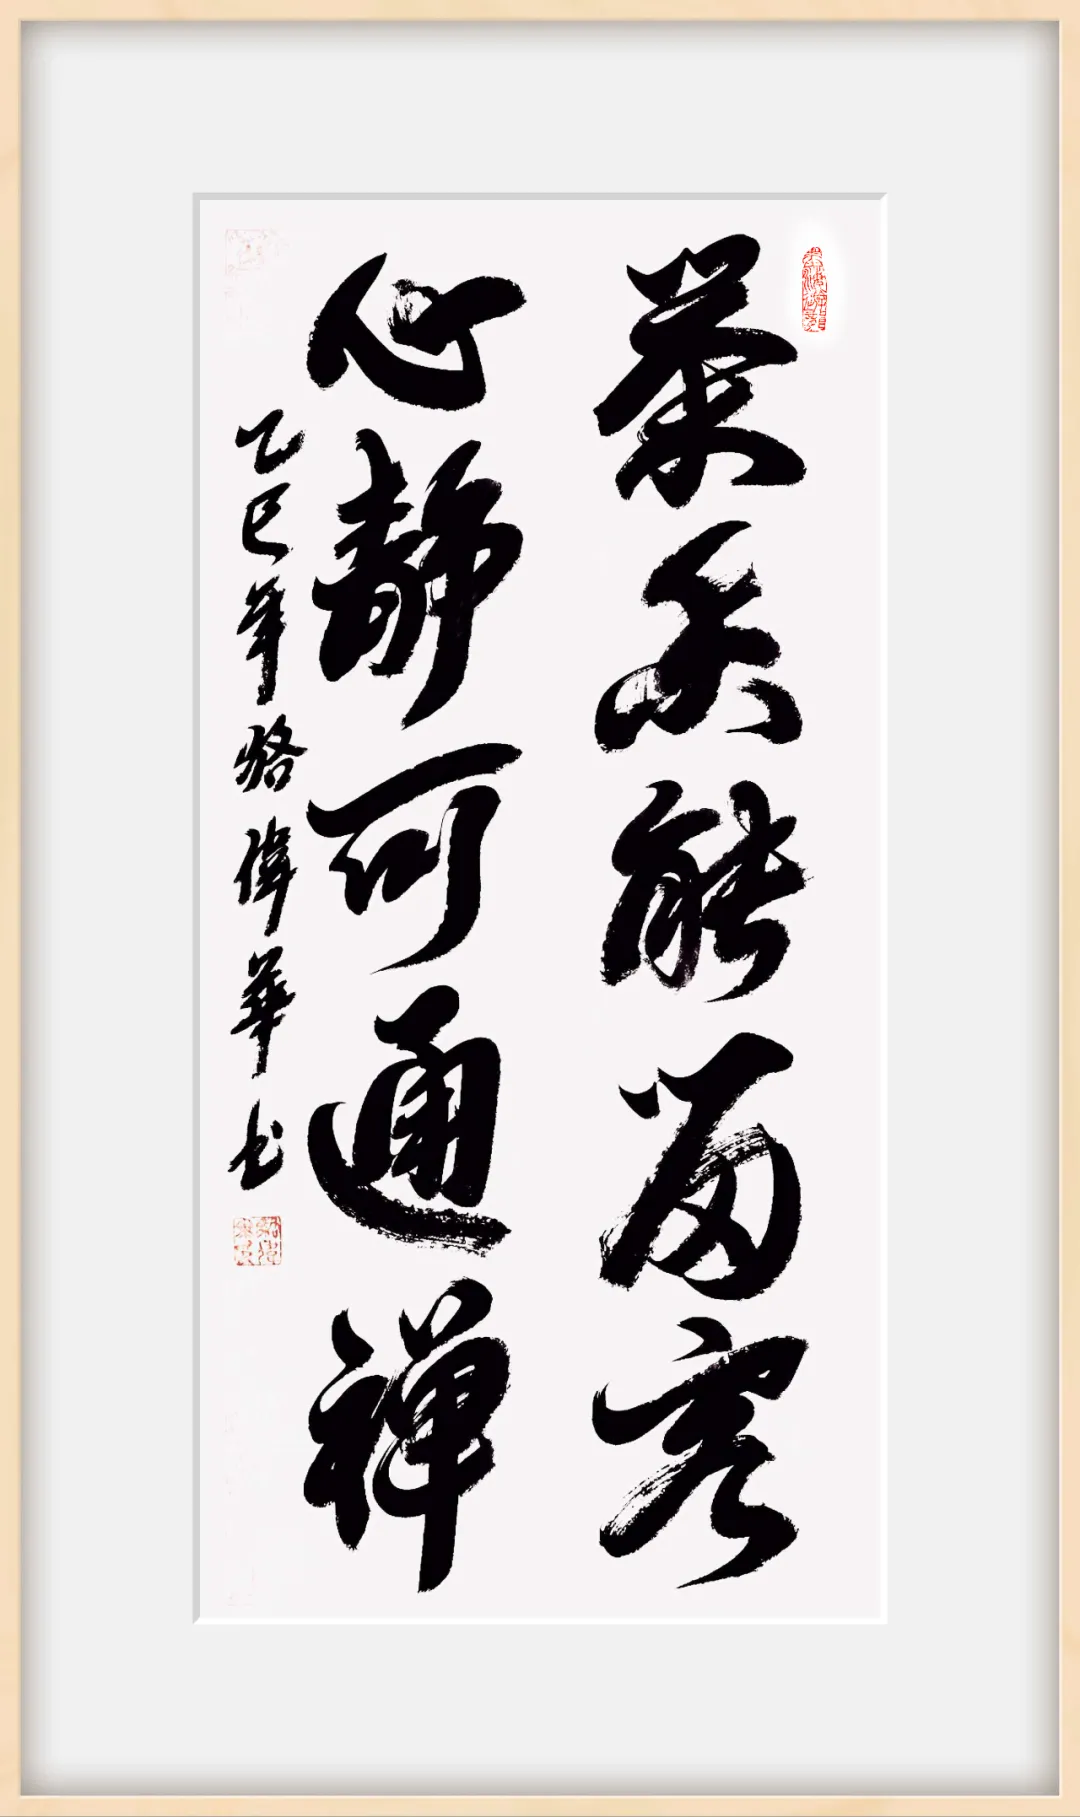 茶香能留客
心静可通禅
乙巳年骆偉華书